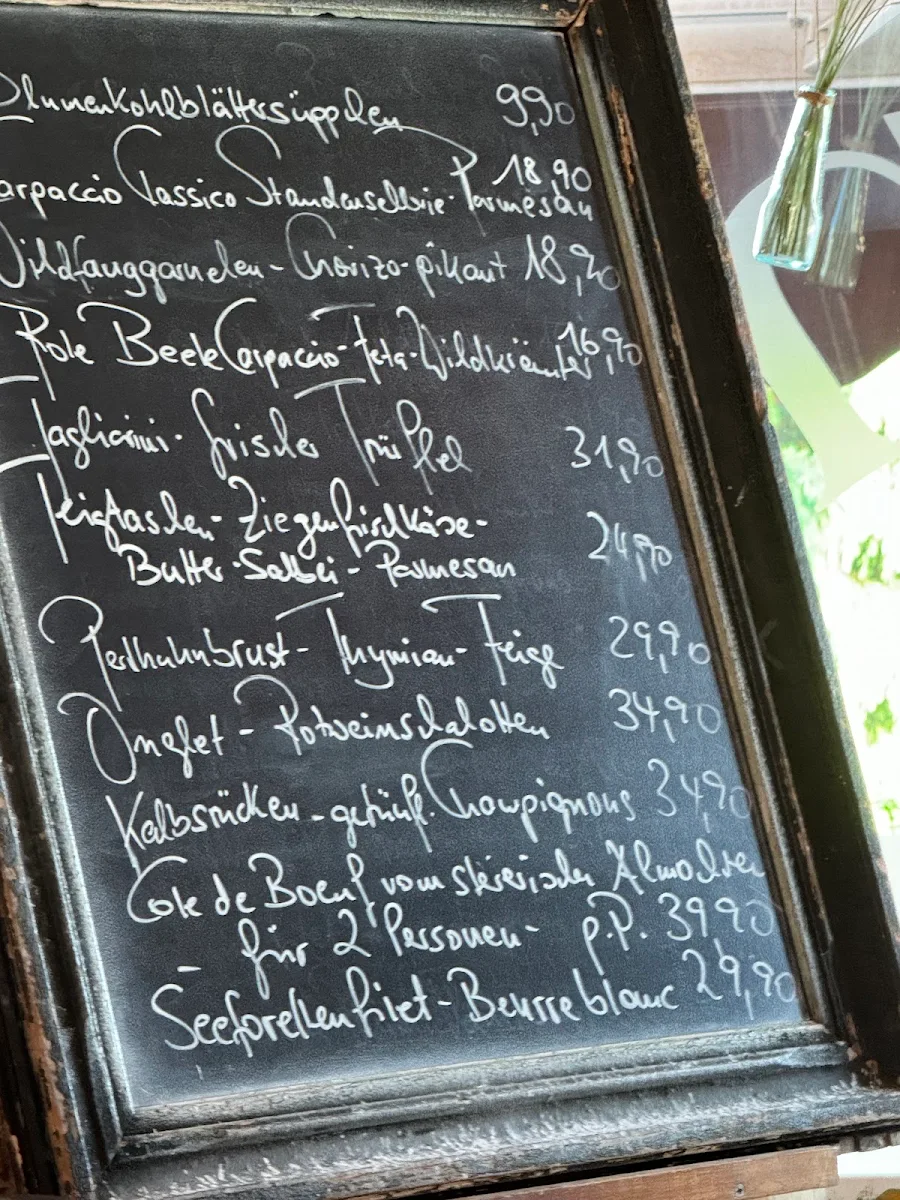 Blumenkohlblättersüppchen 9,90
Carpaccio Classico Staudensellerie-Parmesan 18,90
Wildfanggarnelen-Chorizo-pikant 18,90
Rote Beete Carpaccio-Feta-Wildkräuter 16,90
Tagliarini-frischer Trüffel 31,90
Teigtaschen-Ziegenfrischkäse-
Butter-Salbei-Parmesan 24,90
Perlhuhnbrust-Thymian-Feige 29,90
Onglet-Rotweinschalotten 34,90
Kalbsrücken-getrüff. Champignons 34,90
Cote de Boeuf vom steirischen Almochsen
für 2 Personen- p.P. 39,90
Seeforellenfilet-Beurre blanc 29,90